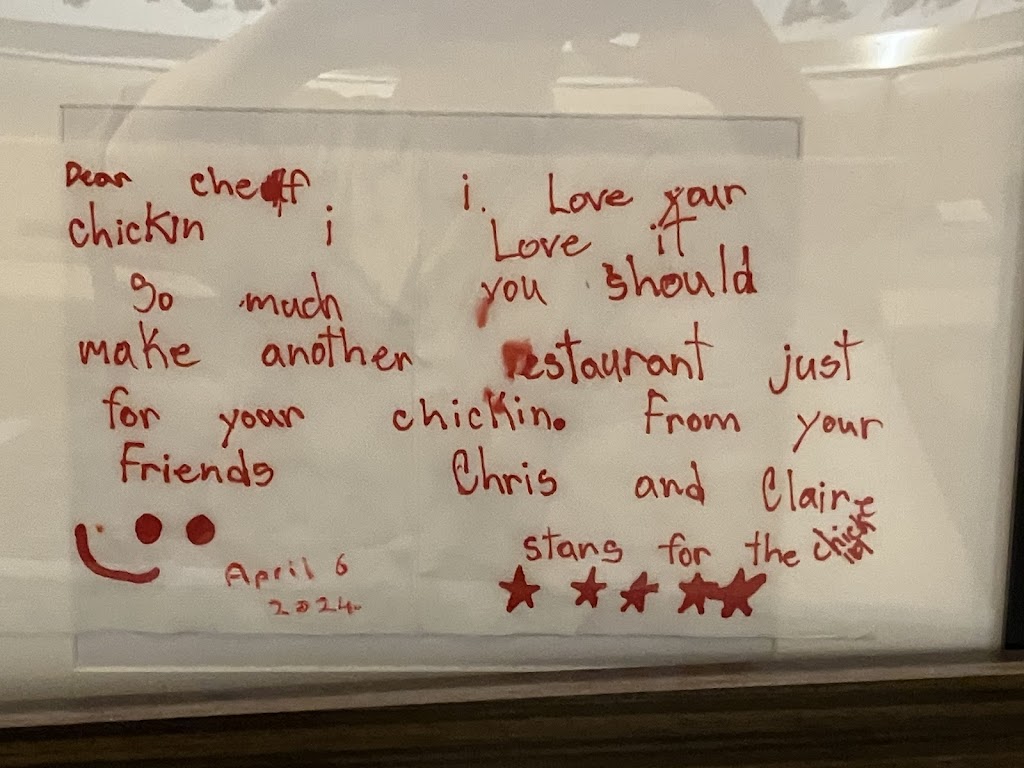 Dear cheff i. Love your
chickin i Love it
So much you should
make another restaurant just
for your chickin. From your
Friends Chris and Claire
stars for the
April 6
2024.